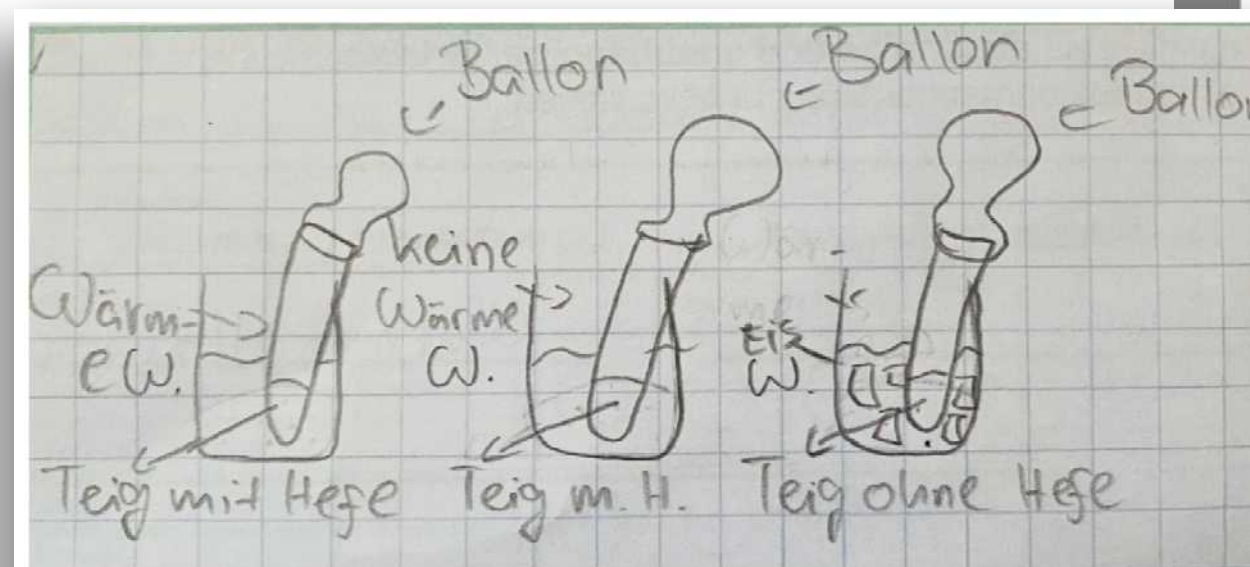 Ballon
Ballon
Ballon
Wärm-
e W.
keine
Wärme
W.
Eis
W.
Teig mit Hefe
Teig m. H.
Teig ohne Hefe